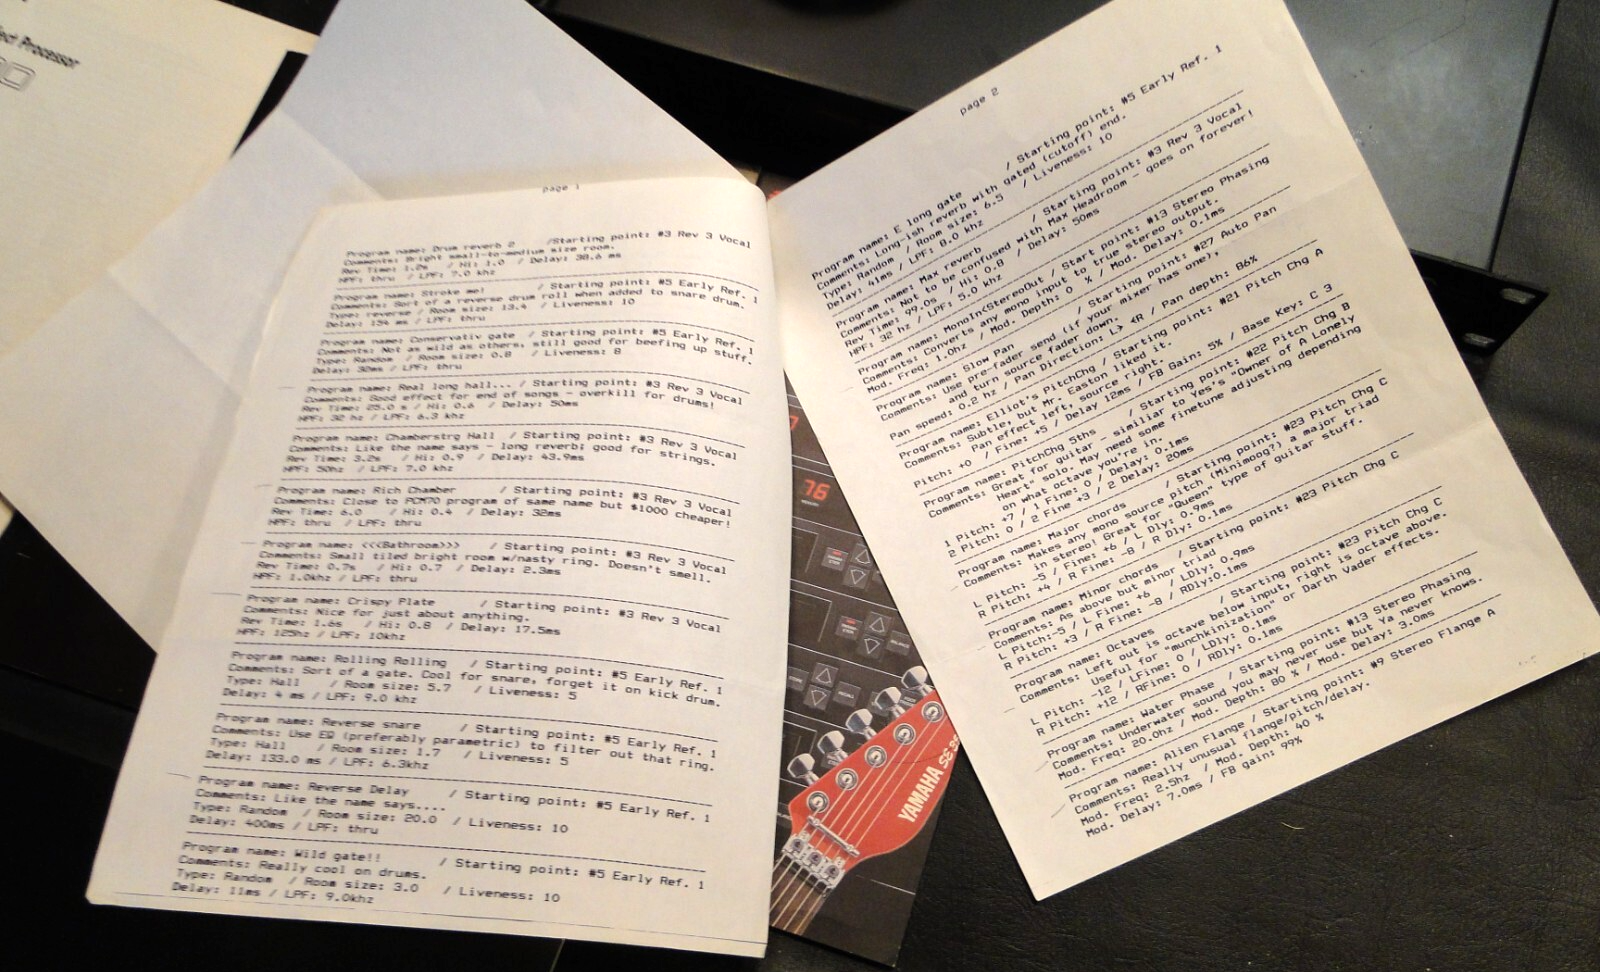 ect Processor
page 1
Program name: Drum reverb 2 /Starting point: #3 Rev 3 Vocal
Comments: Bright small-to-medium size room.
Rev Time: 1.2s / Hi: 1.0 / Delay: 38.6 ms
HPF: thru / LPF: 7.0 khz
Program name: Stroke me! / Starting point: #5 Early Ref. 1
Comments: Sort of a reverse drum roll when added to snare drum.
Type: reverse / Room size: 13.4 / Liveness: 10
Delay: 154 ms / LPF: thru
Program name: Conservativ gate / Starting point: #5 Early Ref. 1
Comments: Not as wild as others, still good for beefing up stuff.
Type: Random / Room size: 0.8 / Liveness: 8
Delay: 32ms / LPF: thru
Program name: Real long hall... / Starting point: #3 Rev 3 Vocal
Comments: Good effect for end of songs - overkill for drums!
Rev Time: 25.0 s / Hi: 0.6 / Delay: 50ms
HPF: 32 hz / LPF: 6.3 khz
Program name: Chamberstrg Hall / Starting point: #3 Rev 3 Vocal
Comments: Like the name says - long reverb; good for strings.
Rev Time: 3.2s / Hi: 0.9 / Delay: 43.9ms
HPF: 50hz / LPF: 7.0 khz
Program name: Rich Chamber / Starting point: #3 Rev 3 Vocal
Comments: Close to PCM70 program of same name but $1000 cheaper!
Rev Time: 6.0 / Hi: 0.4 / Delay: 32ms
HPF: thru / LPF: thru
Program name: <<<Bathroom>>> / Starting point: #3 Rev 3 Vocal
Comments: Small tiled bright room w/nasty ring. Doesn't smell.
Rev Time: 0.7s / Hi: 0.7 / Delay: 2.3ms
HPF: 1.0khz / LPF: thru
Program name: Crispy Plate / Starting point: #3 Rev 3 Vocal
Comments: Nice for just about anything.
Rev Time: 1.6s / Hi: 0.8 / Delay: 17.5ms
HPF: 125hz / LPF: 10khz
Program name: Rolling Rolling / Starting point: #5 Early Ref. 1
Comments: Sort of a gate. Cool for snare, forget it on kick drum.
Type: Hall / Room size: 5.7 / Liveness: 5
Delay: 4 ms / LPF: 9.0 khz
Program name: Reverse snare / Starting point: #5 Early Ref. 1
Comments: Use EQ (preferably parametric) to filter out that ring.
Type: Hall / Room size: 1.7 / Liveness: 5
Delay: 133.0 ms / LPF: 6.3khz
Program name: Reverse Delay / Starting point: #5 Early Ref. 1
Comments: Like the name says....
Type: Random / Room size: 20.0 / Liveness: 10
Delay: 400ms / LPF: thru
Program name: Wild gate!! / Starting point: #5 Early Ref. 1
Comments: Really cool on drums.
Type: Random / Room size: 3.0 / Liveness: 10
Delay: 11ms / LPF: 9.0khz
page 2
Program name: E long gate / Starting point: #5 Early Ref. 1
Comments: Long-ish reverb with gated (cutoff) end.
Type: Random / Room size: 6.5 / Liveness: 10
Delay: 41ms / LPF: 8.0 khz
Program name: Max reverb / Starting point: #3 Rev 3 Vocal
Comments: Not to be confused with Max Headroom - goes on forever!
Rev Time: 99.0s / Hi: 0.8 / Delay: 50ms
HPF: 32 hz / LPF: 5.0 khz
Program name: MonoIn<StereoOut / Start point: #13 Stereo Phasing
Comments: Converts any mono input to true stereo output.
Mod. Freq: 1.0hz / Mod. Depth: 0 % / Mod. Delay: 0.1ms
Program name: Slow Pan / Starting point: #27 Auto Pan
Comments: Use pre-fader send (if your mixer has one),
and turn source fader down.
Pan speed: 0.2 hz / Pan Direction: L> <R / Pan depth: 86%
Program name: Elliot's PitchChg / Starting point: #21 Pitch Chg A
Comments: Subtle, but Mr. Easton liked it.
Pan effect left, source right.
Pitch: +0 / Fine: +5 / Delay 12ms / FB Gain: 5% / Base Key: C 3
Program name: PitchChg 5ths / Starting point: #22 Pitch Chg B
Comments: Great for guitar - similiar to Yes's "Owner of A Lonely
Heart" solo. May need some finetune adjusting depending
on what octave you're in.
1 Pitch: +7 / 1 Fine: 0 / Delay: 0.1ms
2 Pitch: 0 / 2 Fine: +3 / 2 Delay: 20ms
Program name: Major chords / Starting point: #23 Pitch Chg C
Comments: Makes any mono source pitch (Minimoog?) a major triad
in stereo! Great for "Queen" type of guitar stuff.
L Pitch: -5 / L Fine: +6 / L Dly: 0.9ms
R Pitch: +4 / R Fine: -8 / R Dly: 0.1ms
Program name: Minor chords / Starting point: #23 Pitch Chg C
Comments: As above but minor triad
L Pitch:-5 / L Fine: +6 / LDly: 0.9ms
R Pitch: +3 / R Fine: -8 / RDly:0.1ms
Program name: Octaves / Starting point: #23 Pitch Chg C
Comments: Left out is octave below input, right is octave above.
Useful for "munchkinization" or Darth Vader effects.
L Pitch: -12 / LFine: 0 / LDly: 0.1ms
R Pitch: +12 / RFine: 0 / RDly: 0.1ms
Program name: Water Phase / Starting point: #13 Stereo Phasing
Comments: Underwater sound you may never use but Ya never knows.
Mod. Freq: 20.0hz / Mod. Depth: 80 % / Mod. Delay: 3.0ms
Program name: Alien Flange / Starting point: #9 Stereo Flange A
Comments: Really unusual flange/pitch/delay.
Mod. Freq: 2.5hz / Mod. Depth: 40 %
Mod. Delay: 7.0ms / FB gain: 99%
76
YAMAHA